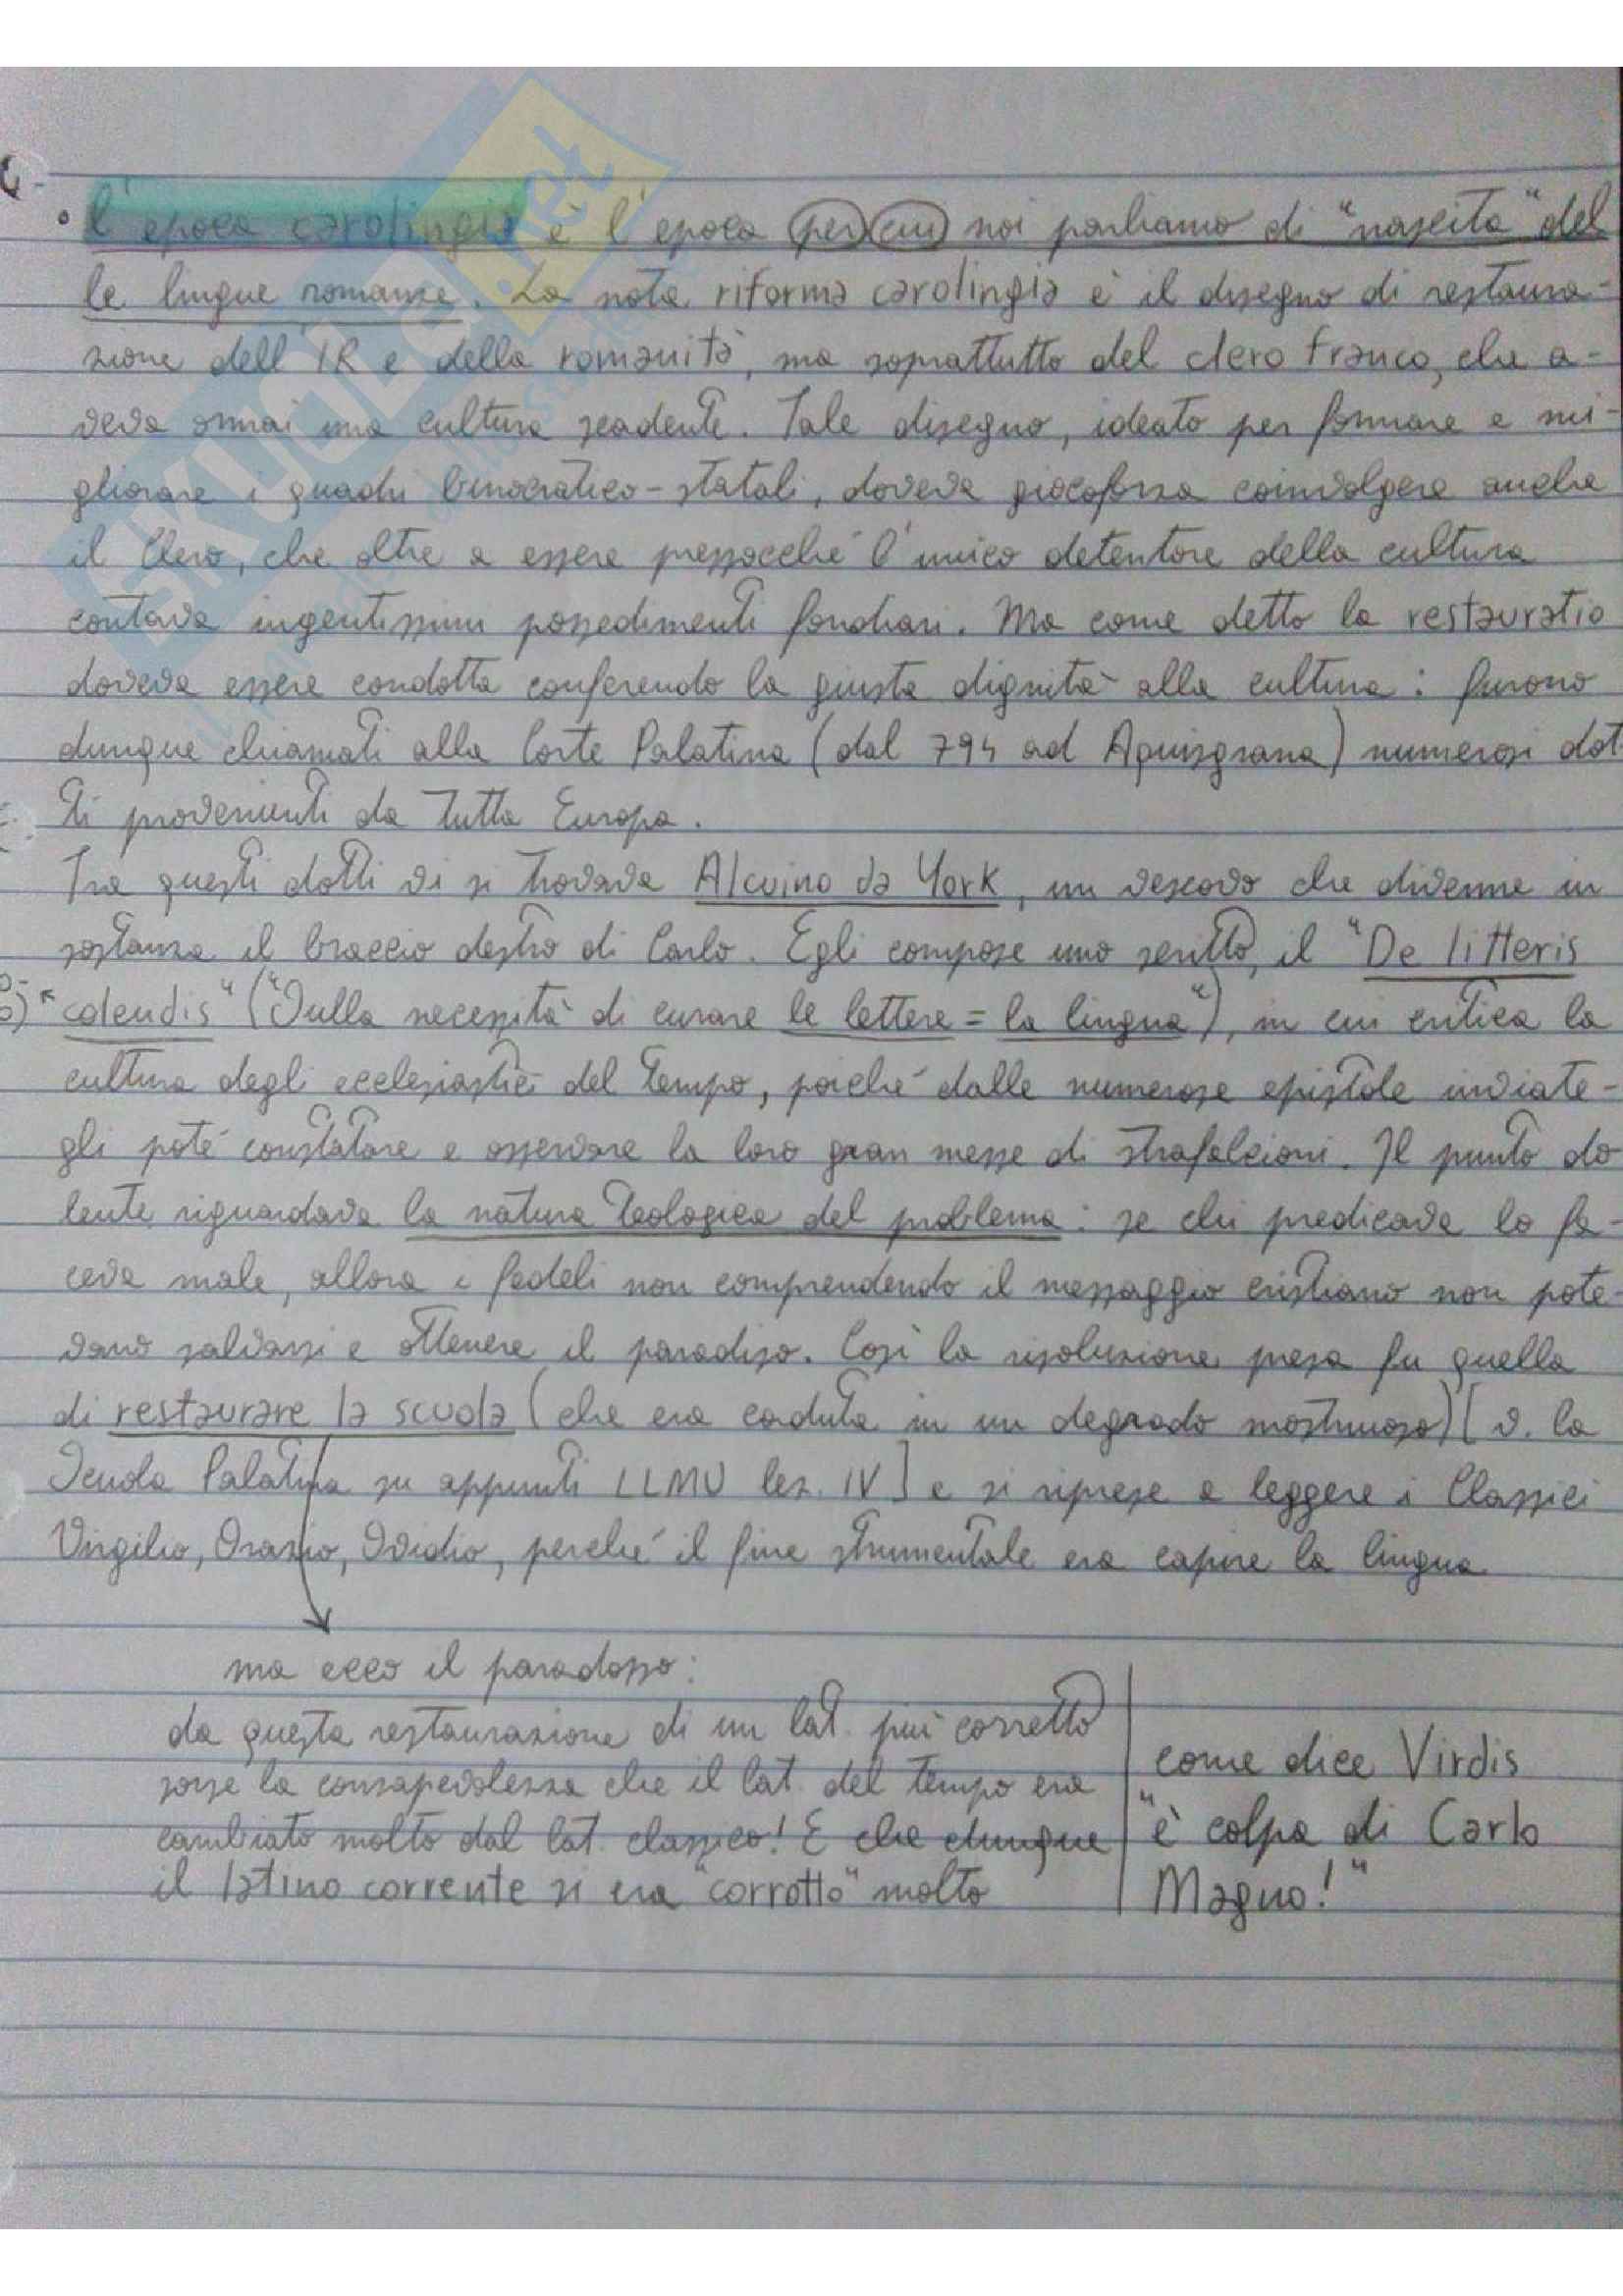 • l'epoca carolingia è l'epoca per cui noi parliamo di "nascita" del
le lingue romanze. La nota riforma carolingia è il disegno di restaura-
zione dell'IR e della romanità, ma soprattutto del clero franco, che a-
veva ormai una cultura scadente. Tale disegno, ideato per formare e mi-
gliorare i quadri burocratico-statali, doveva giocoforza coinvolgere anche
il Clero, che oltre a essere pressocché l'unico detentore della cultura
contava ingentissimi possedimenti fondiari. Ma come detto la restauratio
doveva essere condotta conferendo la giusta dignità alla cultura: furono
dunque chiamati alla Corte Palatina (dal 794 ad Aquisgrana) numerosi dot
ti provenienti da tutta Europa.
Tra questi dotti vi si trovava Alcuino da York, un vescovo che divenne in
sostanza il braccio destro di Carlo. Egli compose uno scritto, il "De litteris
colendis" ("Sulla necessità di curare le lettere = la lingua"), in cui critica la
cultura degli ecclesiastici del tempo, poiché dalle numerose epistole inviate-
gli poté constatare e osservare la loro gran messe di strafalcioni. Il punto do
lente riguardava la natura teologica del problema: se chi predicava lo fa-
ceva male, allora i fedeli non comprendendo il messaggio cristiano non pote-
vano salvarsi e ottenere il paradiso. Così la risoluzione presa fu quella
di restaurare la scuola (che era caduta in un degrado mostruoso) [v. la
Scuola Palatina su appunti LLMU lez. IV] e si riprese a leggere i Classici
Virgilio, Orazio, Ovidio, perché il fine strumentale era capire la lingua
ma ecco il paradosso:
da questa restaurazione di un lat. più corretto
sorse la consapevolezza che il lat. del tempo era
cambiato molto dal lat. classico! E che dunque
il latino corrente si era "corrotto" molto
come dice Virdis
"è colpa di Carlo
Magno!"
SKUOLA.net